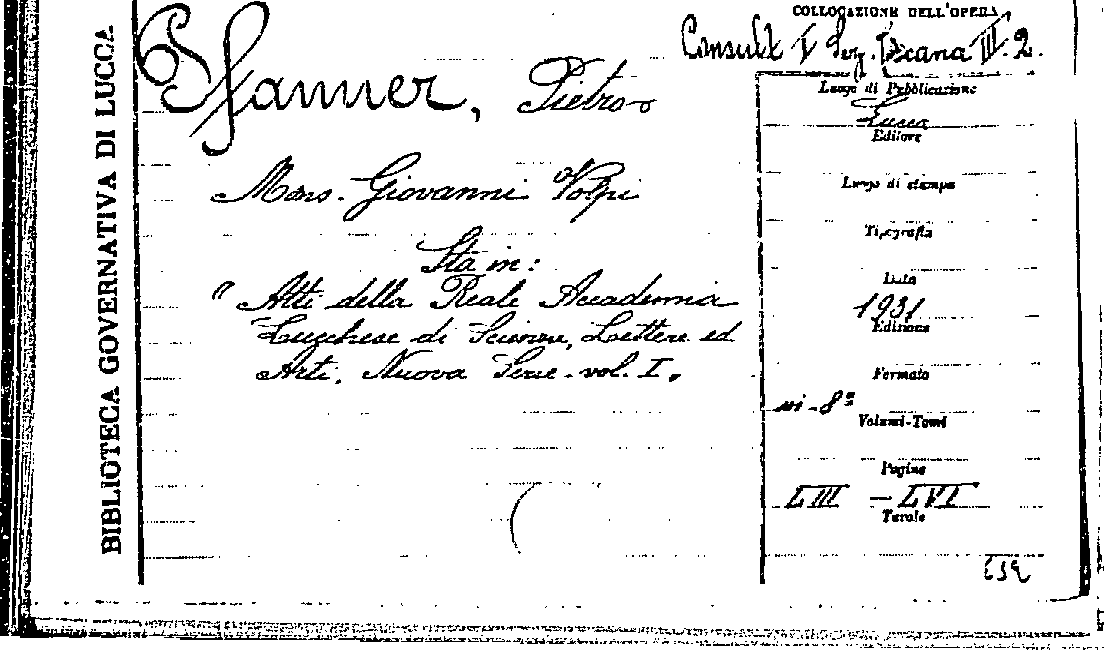 BIBLIOTECA GOVERNATIVA DI LUCCA
Pfanner, Pietro
Mons. Giovanni Volpi
Sta in:
" Atti della Reale Accademia
Lucchese di Scienze, Lettere ed
Arti. Nuova Serie. vol. I.
COLLOCAZIONE DELL'OPERA
Consult. I Sez. Toscana III. 2.
Luogo di Pubblicazione
Lucca
Editore
Luogo di stampa
Tipografia
Data
1931
Edizione
Formato
in-8º
Volumi-Tomi
Pagine
LIII - LVI
Tavole